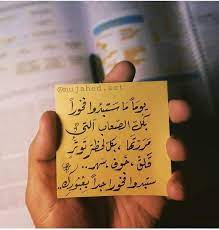 @mujahed.set
يوماً ما ستبدو فخوراً
بكل الصعاب التي
مررتها ، بكل لحظة توتر
قلق ، خوف ، سهر ..
ستبدو فخوراً جداً بعبورك.